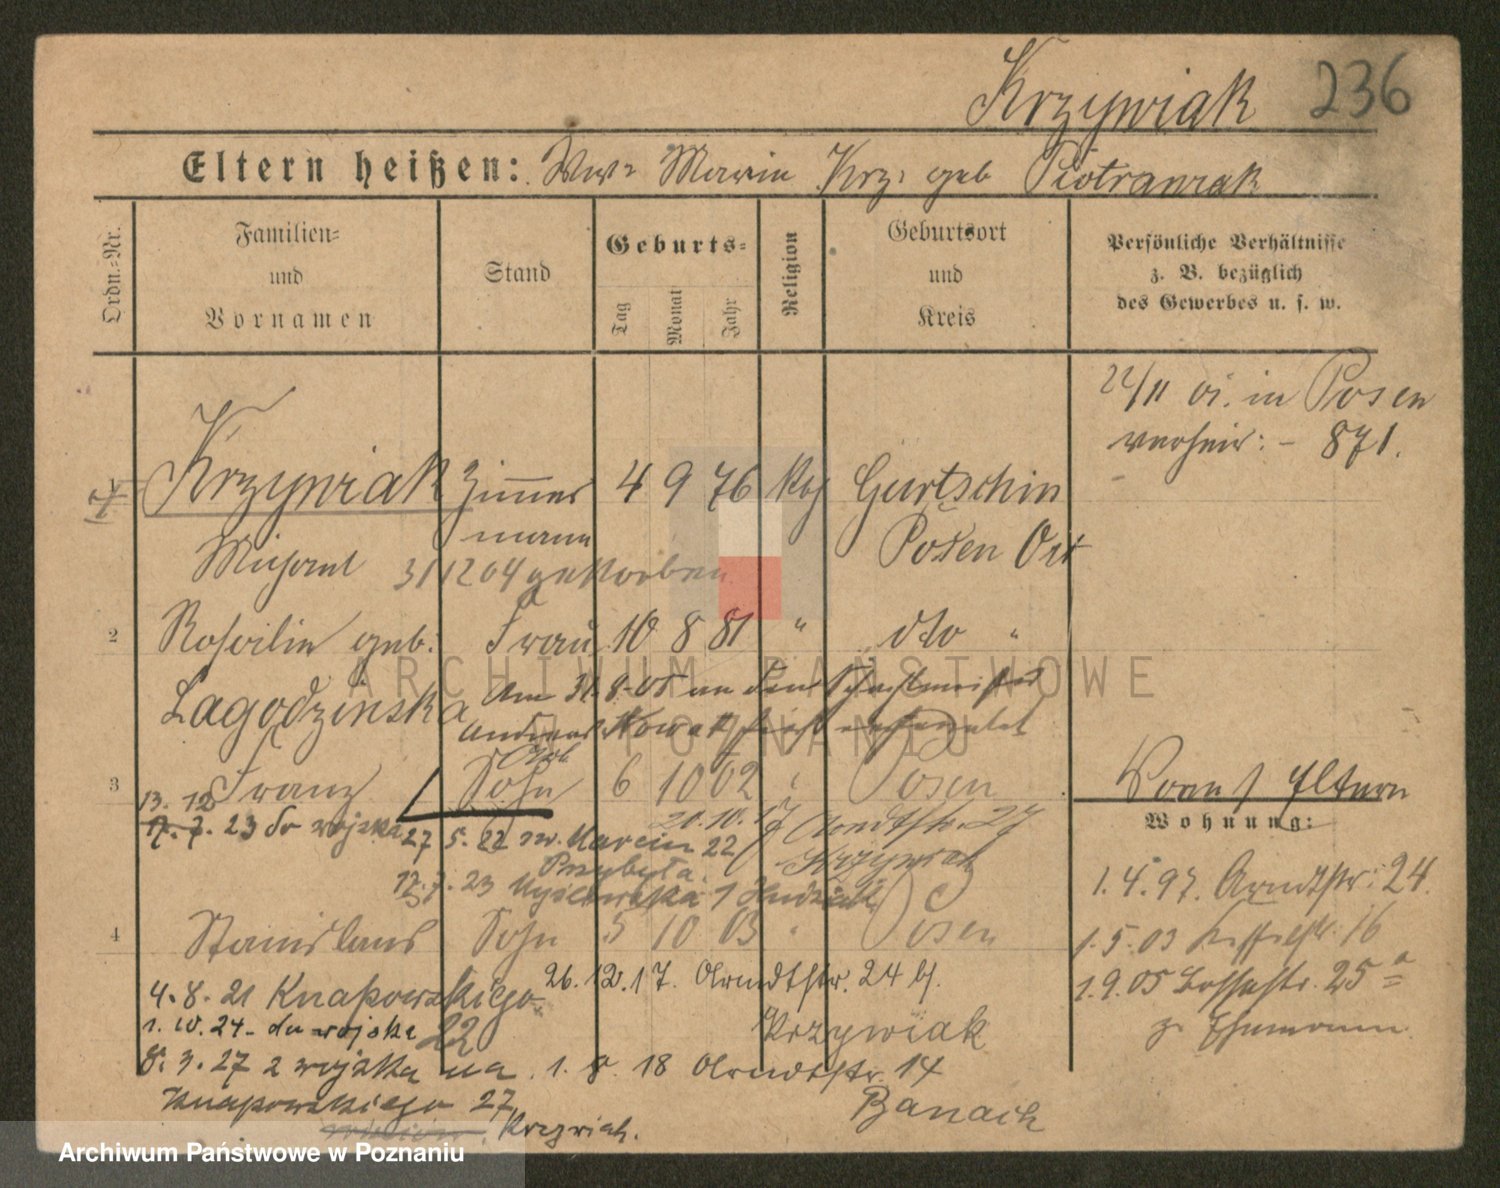 Krzywiak 236
Eltern heißen: Ww: Marie Krz: geb Piotrawiak
Ordn.-Nr.
Familien-
und
Vornamen
Stand
Geburts-
Tag
Monat
Jahr
Religion
Geburtsort
und
Kreis
Persönliche Verhältnisse
z. B. bezüglich
des Gewerbes u. s. w.
22/11 01. in Posen
verheir: - 871.
1 Krzywiak Zimmer 4 9 76 Gurtschin
mann Posen Ost
Michael 31 12 04 gestorben
2 Rosalie geb: Frau 10 8 81 " dto "
Lagodzinska Am 31. 8. 05 an den Schachtmeister
Andreas Nowak
3 Franz Sohn 6 10 02 Posen
13. 12
17. 7. 23 do wojska
20. 10. 17 Arndtstr. 27
Krzywiak
27 5. 22 Marcin 22
Przybyła.
17. 7. 23
4 Stanislaus Sohn 5 10 03 " Posen
26. 12. 17. Arndtstr. 24
Krzywiak
4. 8. 21 Knapowskiego
22
1. 10. 24 - do wojska
8. 3. 27 z wojska na
Knapowskiego 27
Krzywiak.
1. 8. 18 Arndtstr. 14
Banach
Vorn / Eltern
Wohnung:
1. 4. 97. Arndtstr: 24.
1. 5. 03 16
1. 9. 05 25 a
z. Ehemann
ARCHIWUM PAŃSTWOWE
W POZNANIU
Archiwum Państwowe w Poznaniu